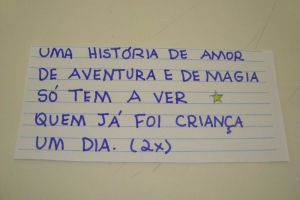 UMA HISTÓRIA DE AMOR
DE AVENTURA E DE MAGIA
SÓ TEM A VER
QUEM JÁ FOI CRIANÇA
UM DIA. (2x)